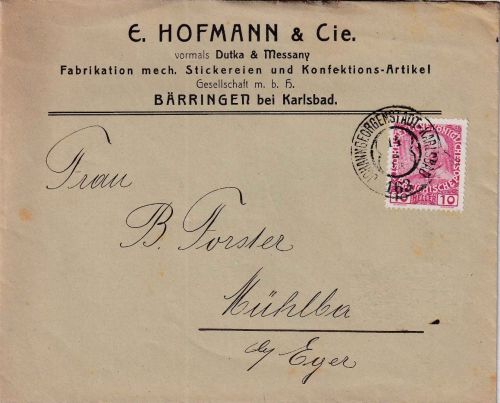 E. HOFMANN & Cie.
vormals Dutka & Messany
Fabrikation mech. Stickereien und Konfektions-Artikel
Gesellschaft m. b. H.
BÄRRINGEN bei Karlsbad.
JOHANNGEORGENSTADT-KARLSBAD
163
10 HELLER 10
Frau
B. Forster
Mühlba
Eger